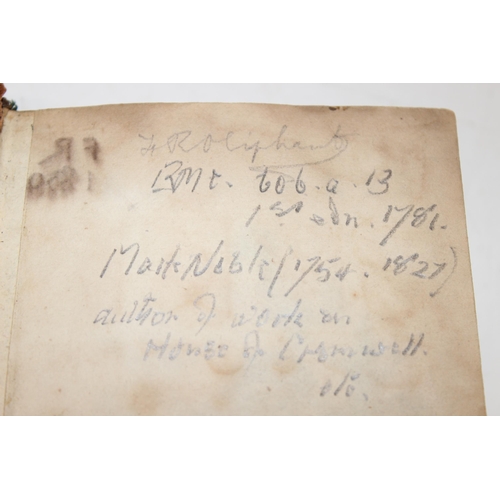 F R Oliphant
BMc. 606. a. 13
1st edn. 1781.
Mark Noble (1754 - 1827)
author of work on
House of Cromwell.
etc.